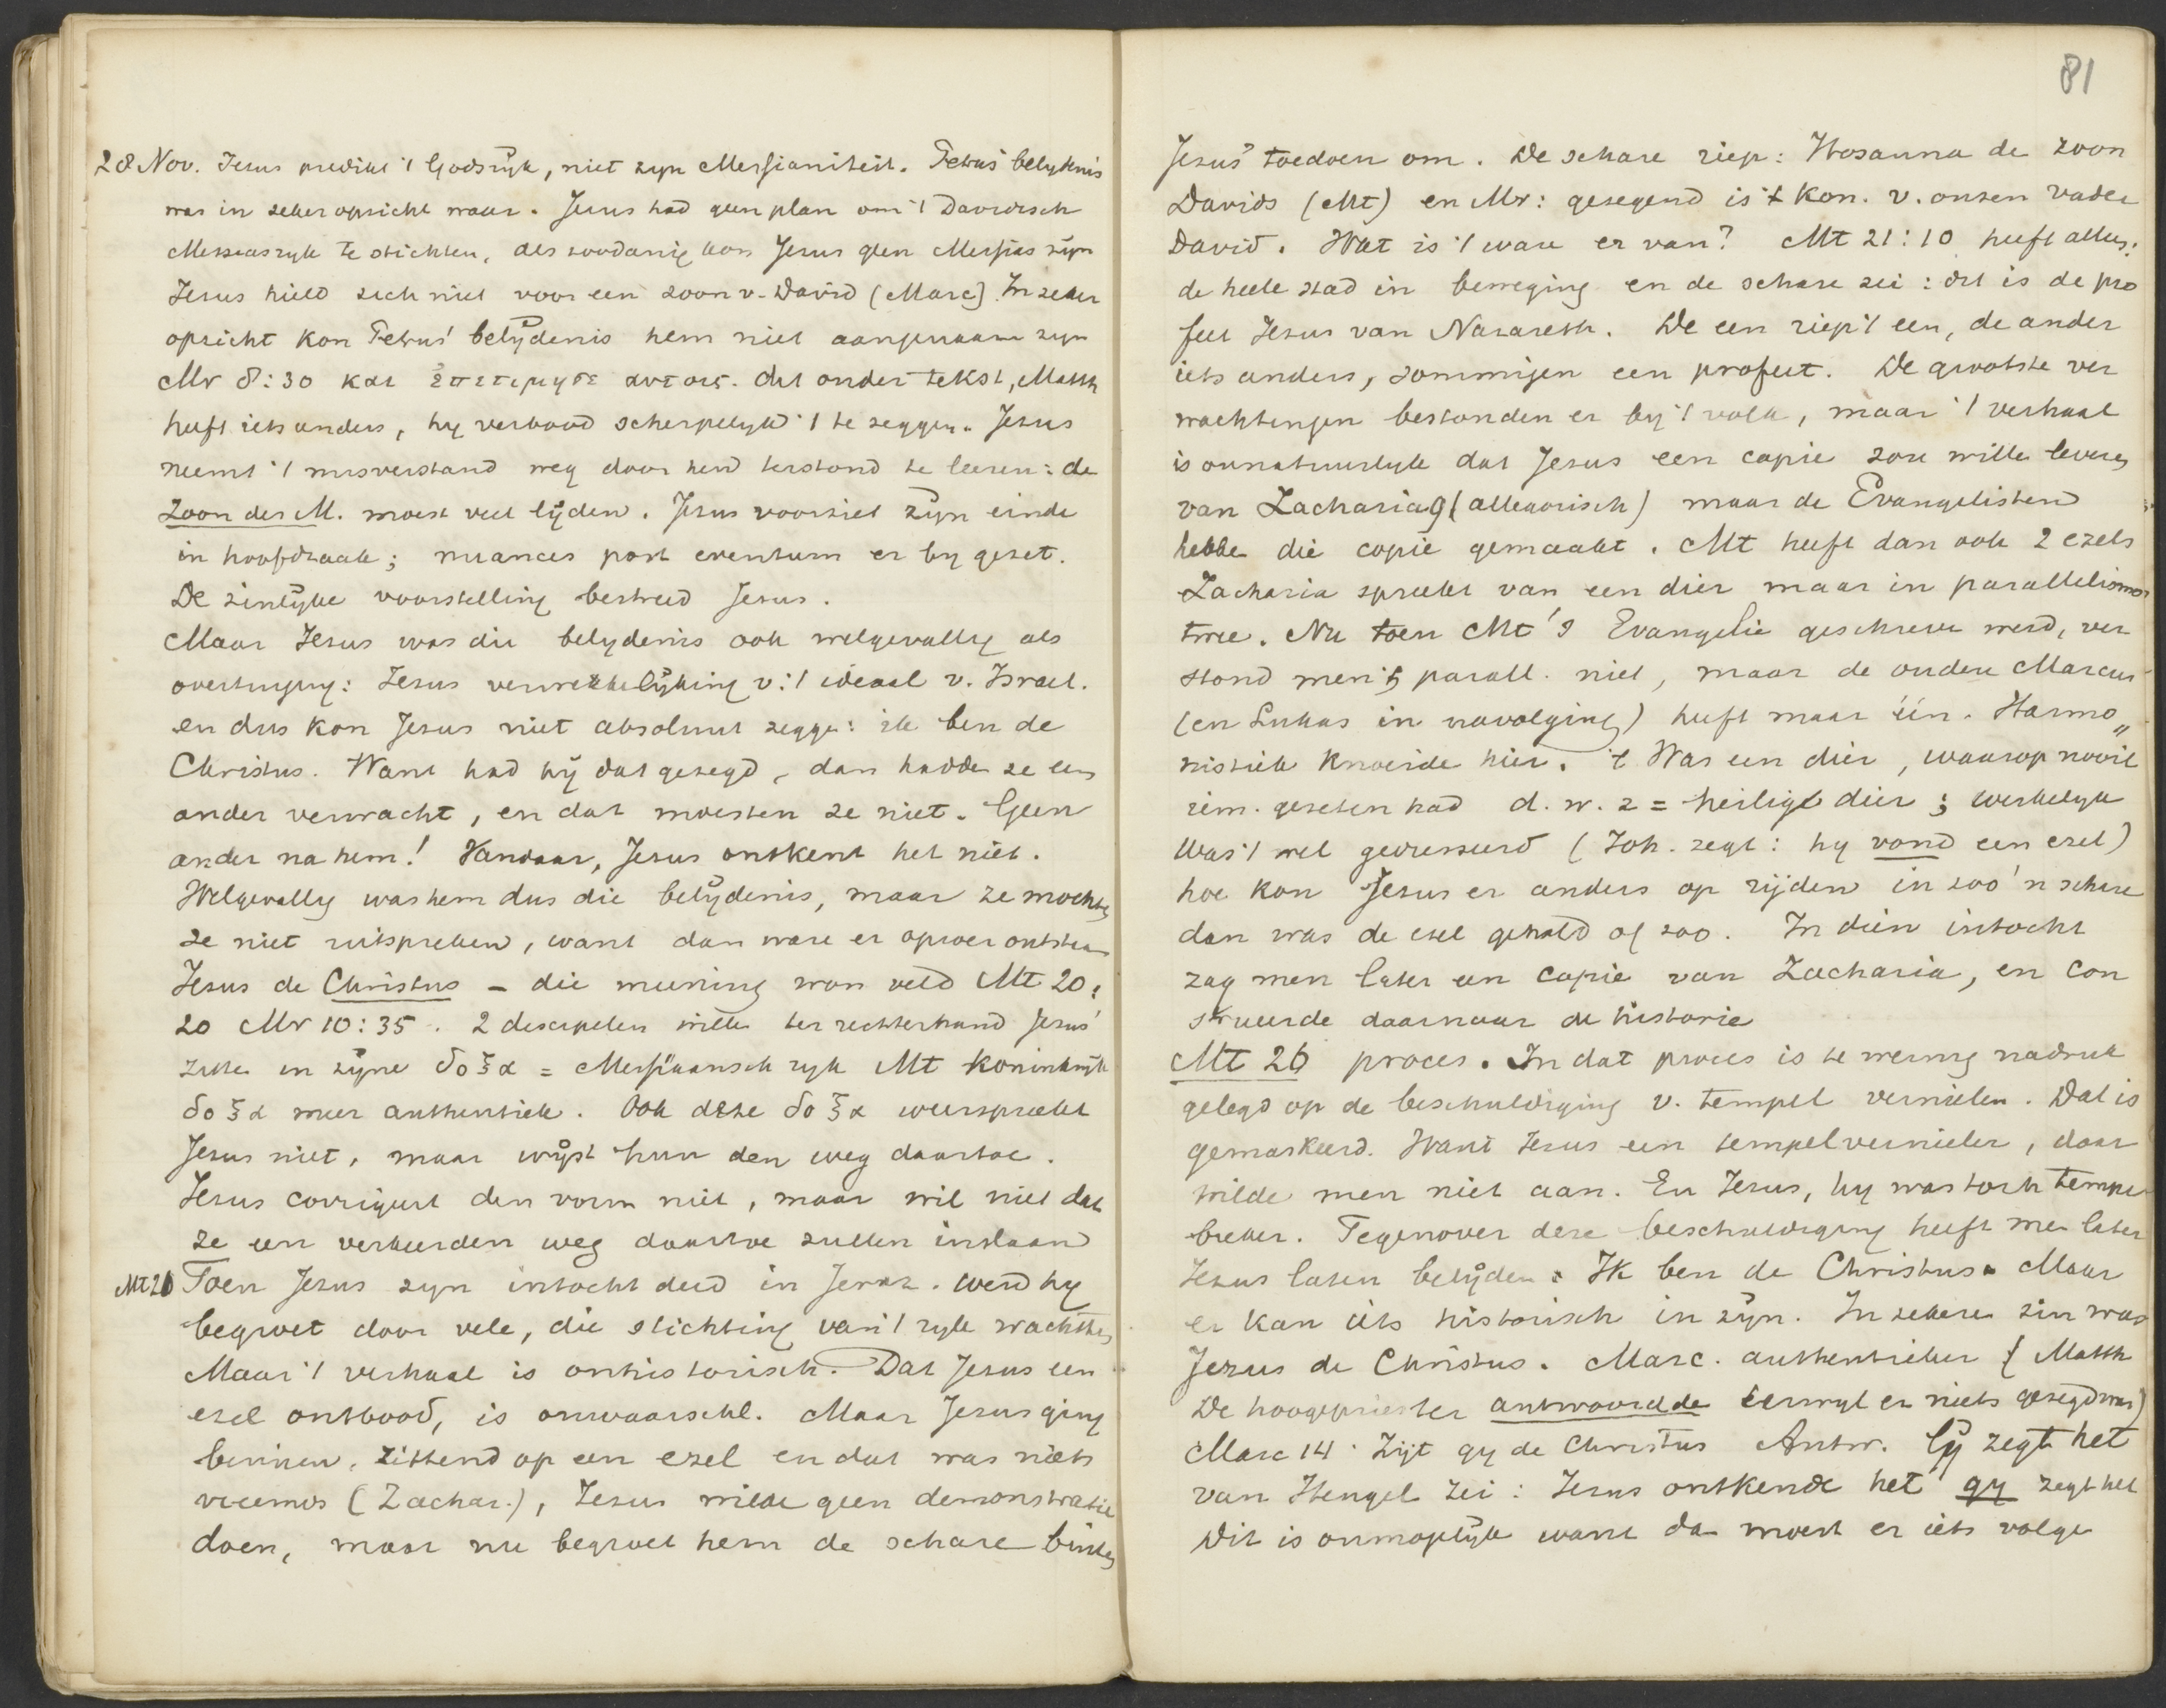 28 Nov. Jesus predikt 't Godsrijk, niet zijn Messianiteit. Petrus' belijdenis
was in zeker opzicht waar. Jezus had geen plan om 't Davidisch
Messiasrijk te stichten, als zoodanig kon Jezus geen Messias zijn
Jezus hield zich niet voor een zoon v. David (Marc). In zeker
opzicht kon Petrus' belijdenis hem niet aangenaam zijn
Mr 8:30 και επετιμησε αυτοις. dit ouder tekst, Matth
heeft iets anders, hij verbood scherpelijk 't te zeggen. Jezus
neemt 't misverstand weg door hen terstond te leeren: de
Zoon des M. moest veel lijden. Jezus voorziet zijn einde
in hoofdzaak; nuances post eventum er bij gezet.
De zinlijke voorstelling bestreed Jezus.
Maar Jezus was die belijdenis ook welgevallig als
overtuiging: Jezus verwezenlijking v. 't ideaal v. Israel.
en dus kon Jezus niet absoluut zegge: ik ben de
Christus. Want had hij dat gezegd, dan hadde ze een
ander verwacht, en dat moesten ze niet. Geen
ander na hem! Vandaar, Jezus ontkent het niet.
Welgevallig was hem dus die belijdenis, maar ze mochten
ze niet uitspreken, want dan ware er oproer ontstaan
Jezus de Christus – die meening won veld Mt 20:
20 Mr 10:35. 2 discipelen wille ter rechterhand Jezus'
zitten in zijne δοξα = Messiaansch rijk Mt koninkrijk
δοξα meer authentiek. Ook deze δοξα weerspreekt
Jezus niet, maar wijst hun den weg daartoe.
Jezus corrigeert den vorm niet, maar wil niet dat
ze een verkeerden weg daartoe zullen inslaan
Mt 21 Toen Jezus zijn intocht deed in Jeruz. werd hij
begroet door vele, die stichting van 't rijk wachtten
Maar 't verhaal is onhistorisch. Dat Jezus een
ezel ontbood, is onwaarschl. Maar Jezus ging
binnen, zittend op een ezel en dat was niets
vreemds (Zachar.), Jezus wilde geen demonstratie
doen, maar nu begroet hem de schare buiten
81
Jezus' toedoen om. De schare riep: Hosanna de zoon
Davids (Mt) en Mr: gezegend is 't kon. v. onzen vader
David. Wat is 't ware er van? Mt 21:10 heeft alles:
de heele stad in beweging en de schare zei: dit is de pro
feet Jezus van Nazareth. De een riep 't een, de ander
iets anders, sommigen een profeet. De grootste ver
wachtingen bestonden er bij 't volk, maar 't verhaal
is onnatuurlijk dat Jezus een copie zou wille leveren
van Zacharia 9 (allegorisch) maar de Evangelisten
hebbe die copie gemaakt. Mt heeft dan ook 2 ezels
Zacharia spreekt van een dier maar in parallelismos
twee. Nu toen Mt's Evangelie geschreve werd, ver
stond men 't parall. niet, maar de oudere Marcus
(en Lukas in navolging) heeft maar één. Harmo„
nistiek knoeide hier. 't Was een dier, waarop nooit
iem. gezeten had d.w.z = heilige dier; werkelijk
Was 't wel gedresseerd (Joh. zegt: hij vond een ezel)
hoe kon Jezus er anders op rijden in zoo'n schare
dan was de ezel gehold of zoo. In dien intocht
zag men later een copie van Zacharia, en con
strueerde daarnaar de historie
Mt 26 proces. In dat proces is te weinig nadruk
gelegd op de beschuldiging v. tempel vernielen. Dat is
gemaskeerd. Want Jezus een tempelvernieler, daar
wilde men niet aan. En Jezus, hij was toch tempel
breker. Tegenover deze beschuldiging heeft men later
Jezus laten belijden: Ik ben de Christus. Maar
er kan iets historisch in zijn. In zekere zin was
Jezus de Christus. Marc. authentieker (Matth
De hoogepriester antwoordde terwijl er niets gezegd was)
Marc 14. Zijt gij de Christus Antw. Gij zegt het
van Hengel zei: Jezus ontkende het gij zegt het
Dit is onmogelijk want dan moest er iets volge